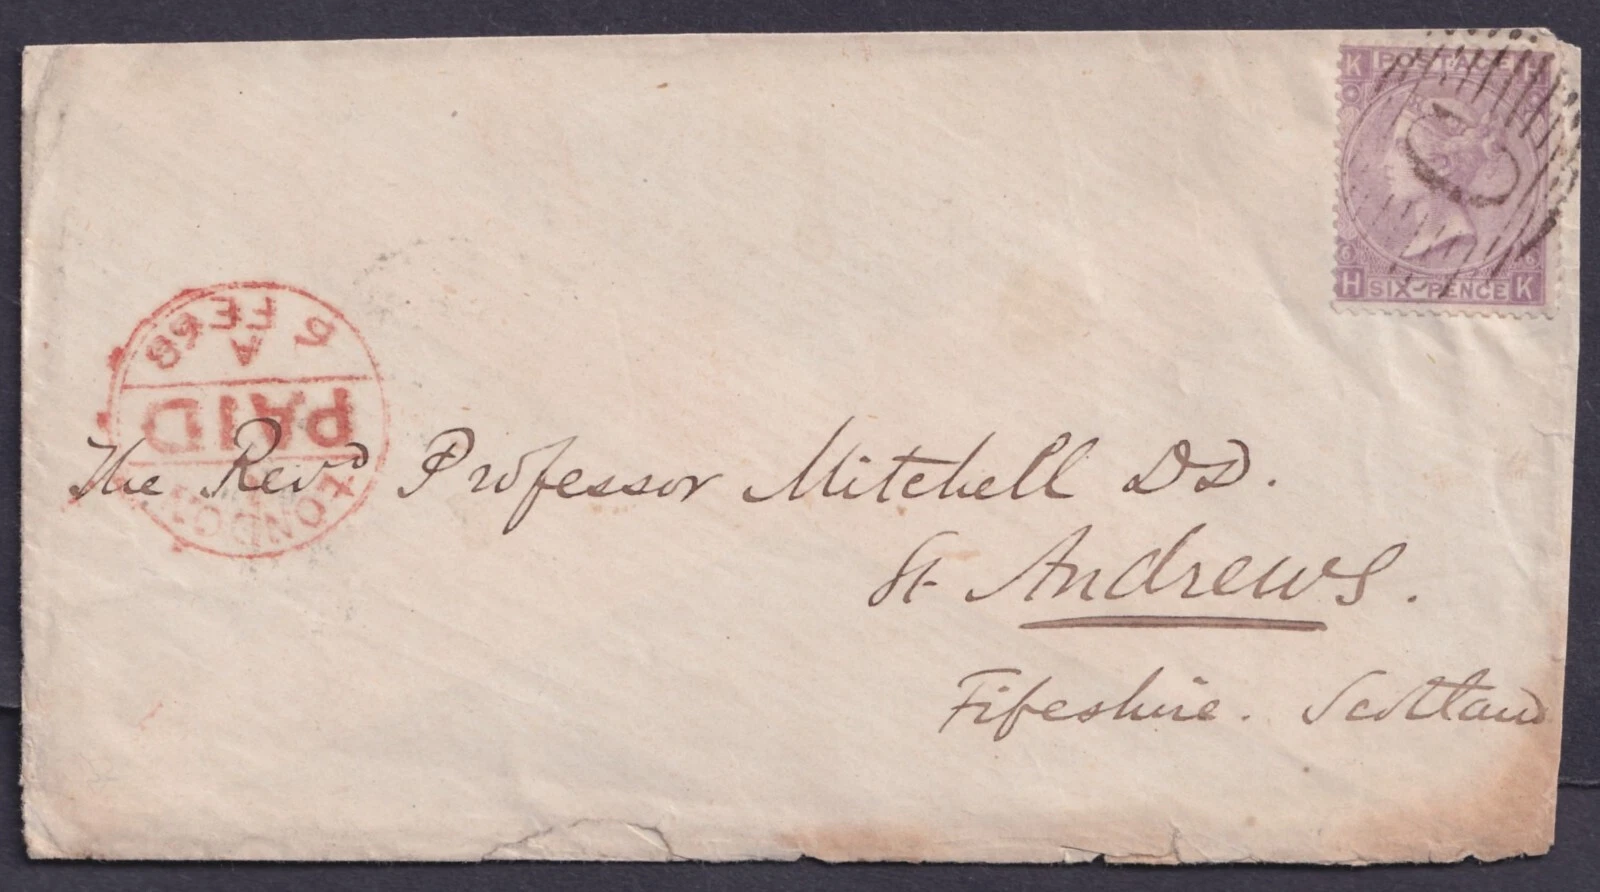 K POSTAGE H
O
6 6
H SIX-PENCE K
LONDON
PAID
A
6 FE 68
The Revd Professor Mitchell DD.
St Andrews.
Fifeshire. Scotland